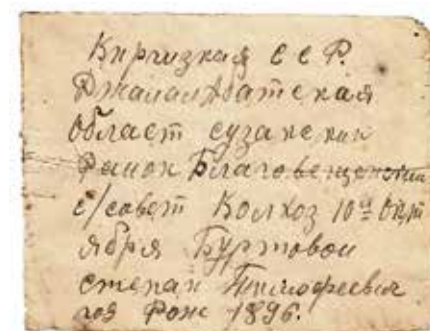 Киргизкая С С Р.
ДжалалАбатская
Област сузакския
Раион Благовещенскии
с/совет Колхоз 10 ый Окт
ября Буртовои
степан Тимофеевич
год Рож 1896.